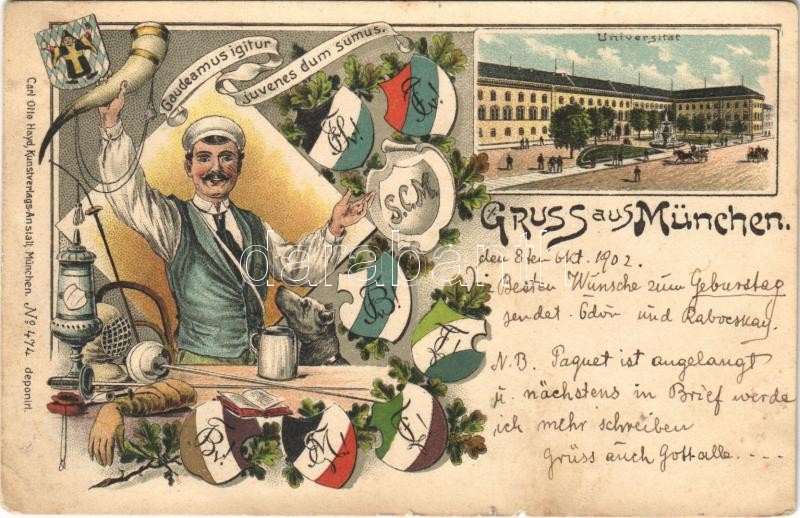 Gaudeamus igitur
juvenes dum sumus.
Universität
S.C.M.
Gruss aus München.
den 8ten Okt. 1902.
Die Besten Wünsche zum Geburstag
sendet Ödön und
N.B. Paquet ist angelangt
u. nächstens in Brief werde
ich mehr schreiben
Grüss auch Gott alle. . --
Carl Otto Hayd, Kunstverlags-Anstalt, München. No 474 deponirt.
darabanth.com